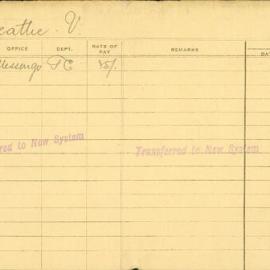 eathe. V.
OFFICE DEPT. RATE OF PAY REMARKS DA
P.C. 45/.
rred to New System Transferred to New System